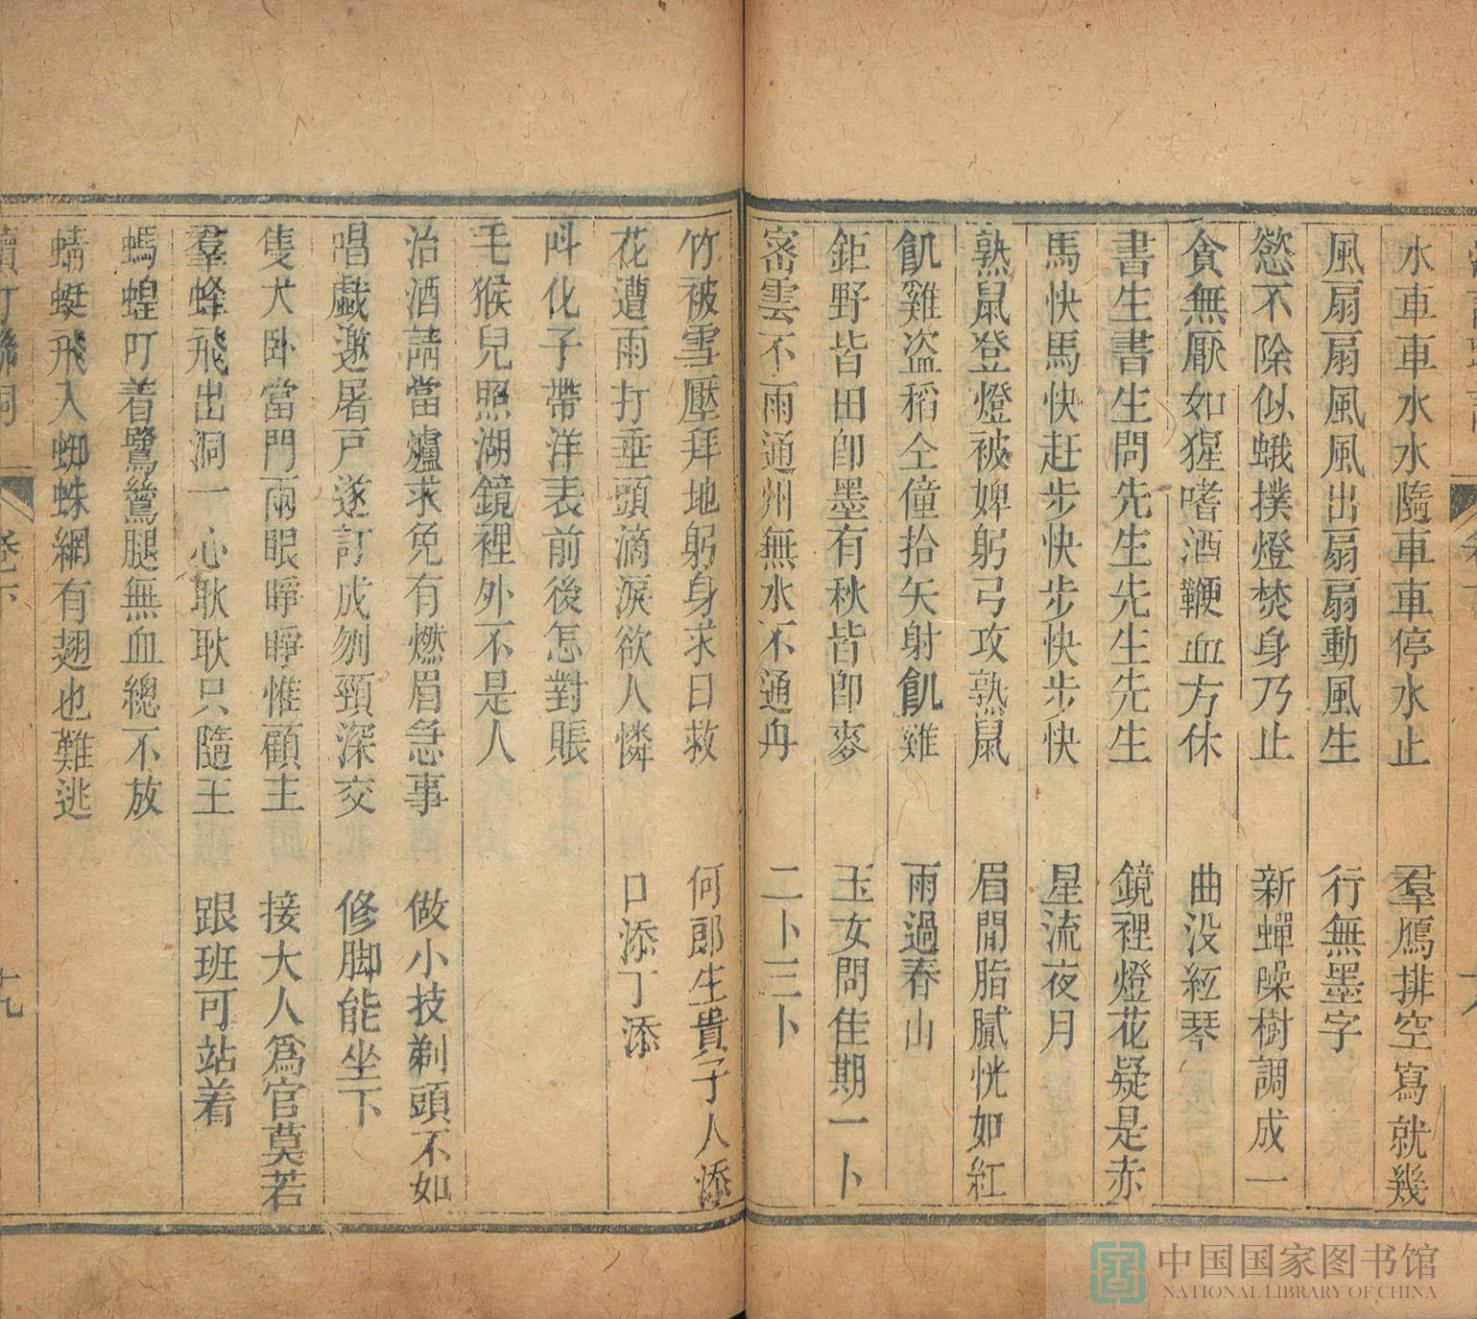 水車車水水隨車車停水止　羣鴈排空寫就幾
風扇扇風風出扇扇動風生　行無墨字
慾不除似蛾撲燈焚身乃止　新蟬噪樹調成一
貪無厭如猩嗜酒鞭血方休　曲没絃琴
書生書生問先生先生先生　鏡裡燈花疑是赤
馬快馬快赶步快步快步快　星流夜月
熟鼠登燈被婢躬弓攻熟鼠　眉間脂膩恍如紅
飢雞盜稻仝僮拾矢射飢雞　雨過春山
鉅野皆田卽墨有秋皆卽麥　玉女問佳期一卜
密雲不雨通州無水不通舟　二卜三卜
竹被雪壓拜地躬身求日救　何郎生貴子人添
花遭雨打垂頭滴淚欲人憐　口添丁添
呌化子帶洋表前後怎對賬
毛猴兒照湖鏡裡外不是人
治酒請當爐求免有燃眉急事　做小技剃頭不如
唱戲邀屠戸遂訂成刎頸深交　修脚能坐下
隻犬卧當門兩眼睜睜惟顧主　接大人爲官莫若
羣蜂飛出洞一心耿耿只隨王　跟班可站着
螞蝗叮着鷺鷥腿無血總不放
蜻蜓飛入蜘蛛網有翅也難逃
卷下
十九
中国国家图书馆
NATIONAL LIBRARY OF CHINA